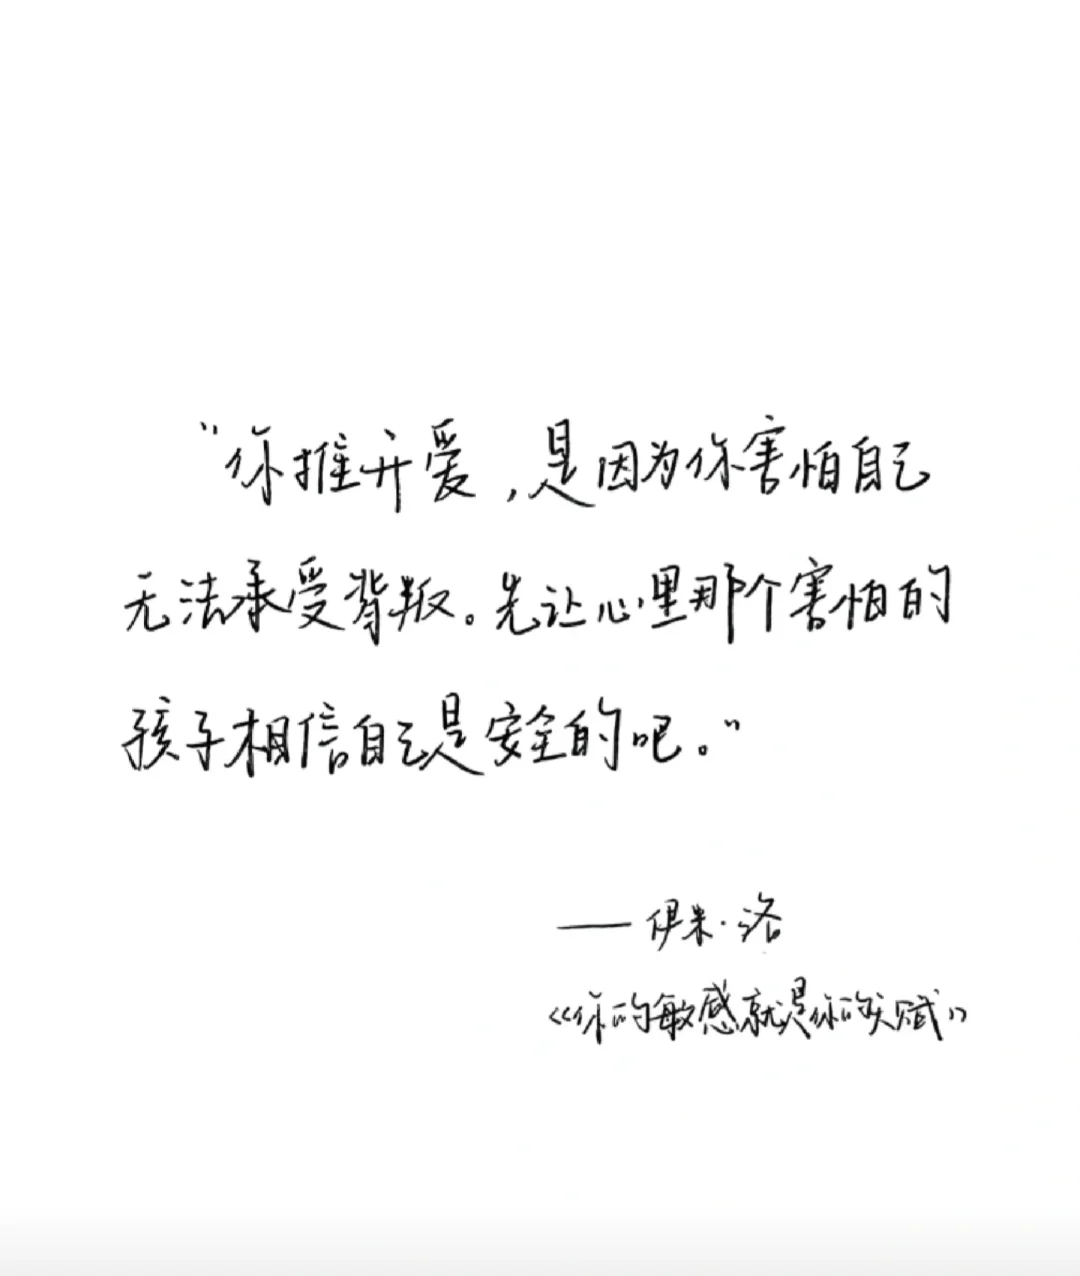 “你推开爱，是因为你害怕自己
无法承受背叛。先让心里那个害怕的
孩子相信自己是安全的吧。”
——伊米·洛
《你的敏感就是你的天赋》